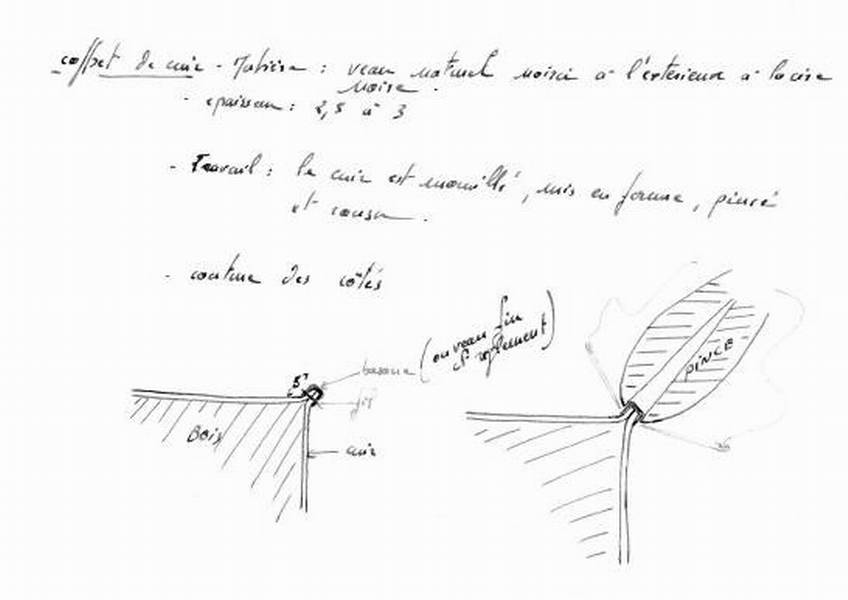 coffret de cuir - Matière : veau naturel noirci à l'extérieur à la cire
noire.
- épaisseur : 2,5 à 3
- Travail : le cuir est mouillé, mis en forme, pincé
et cousu.
- couture des côtés
(ou veau fin
et souplement)
basane
5
fil
Bois
cuir
PINCE